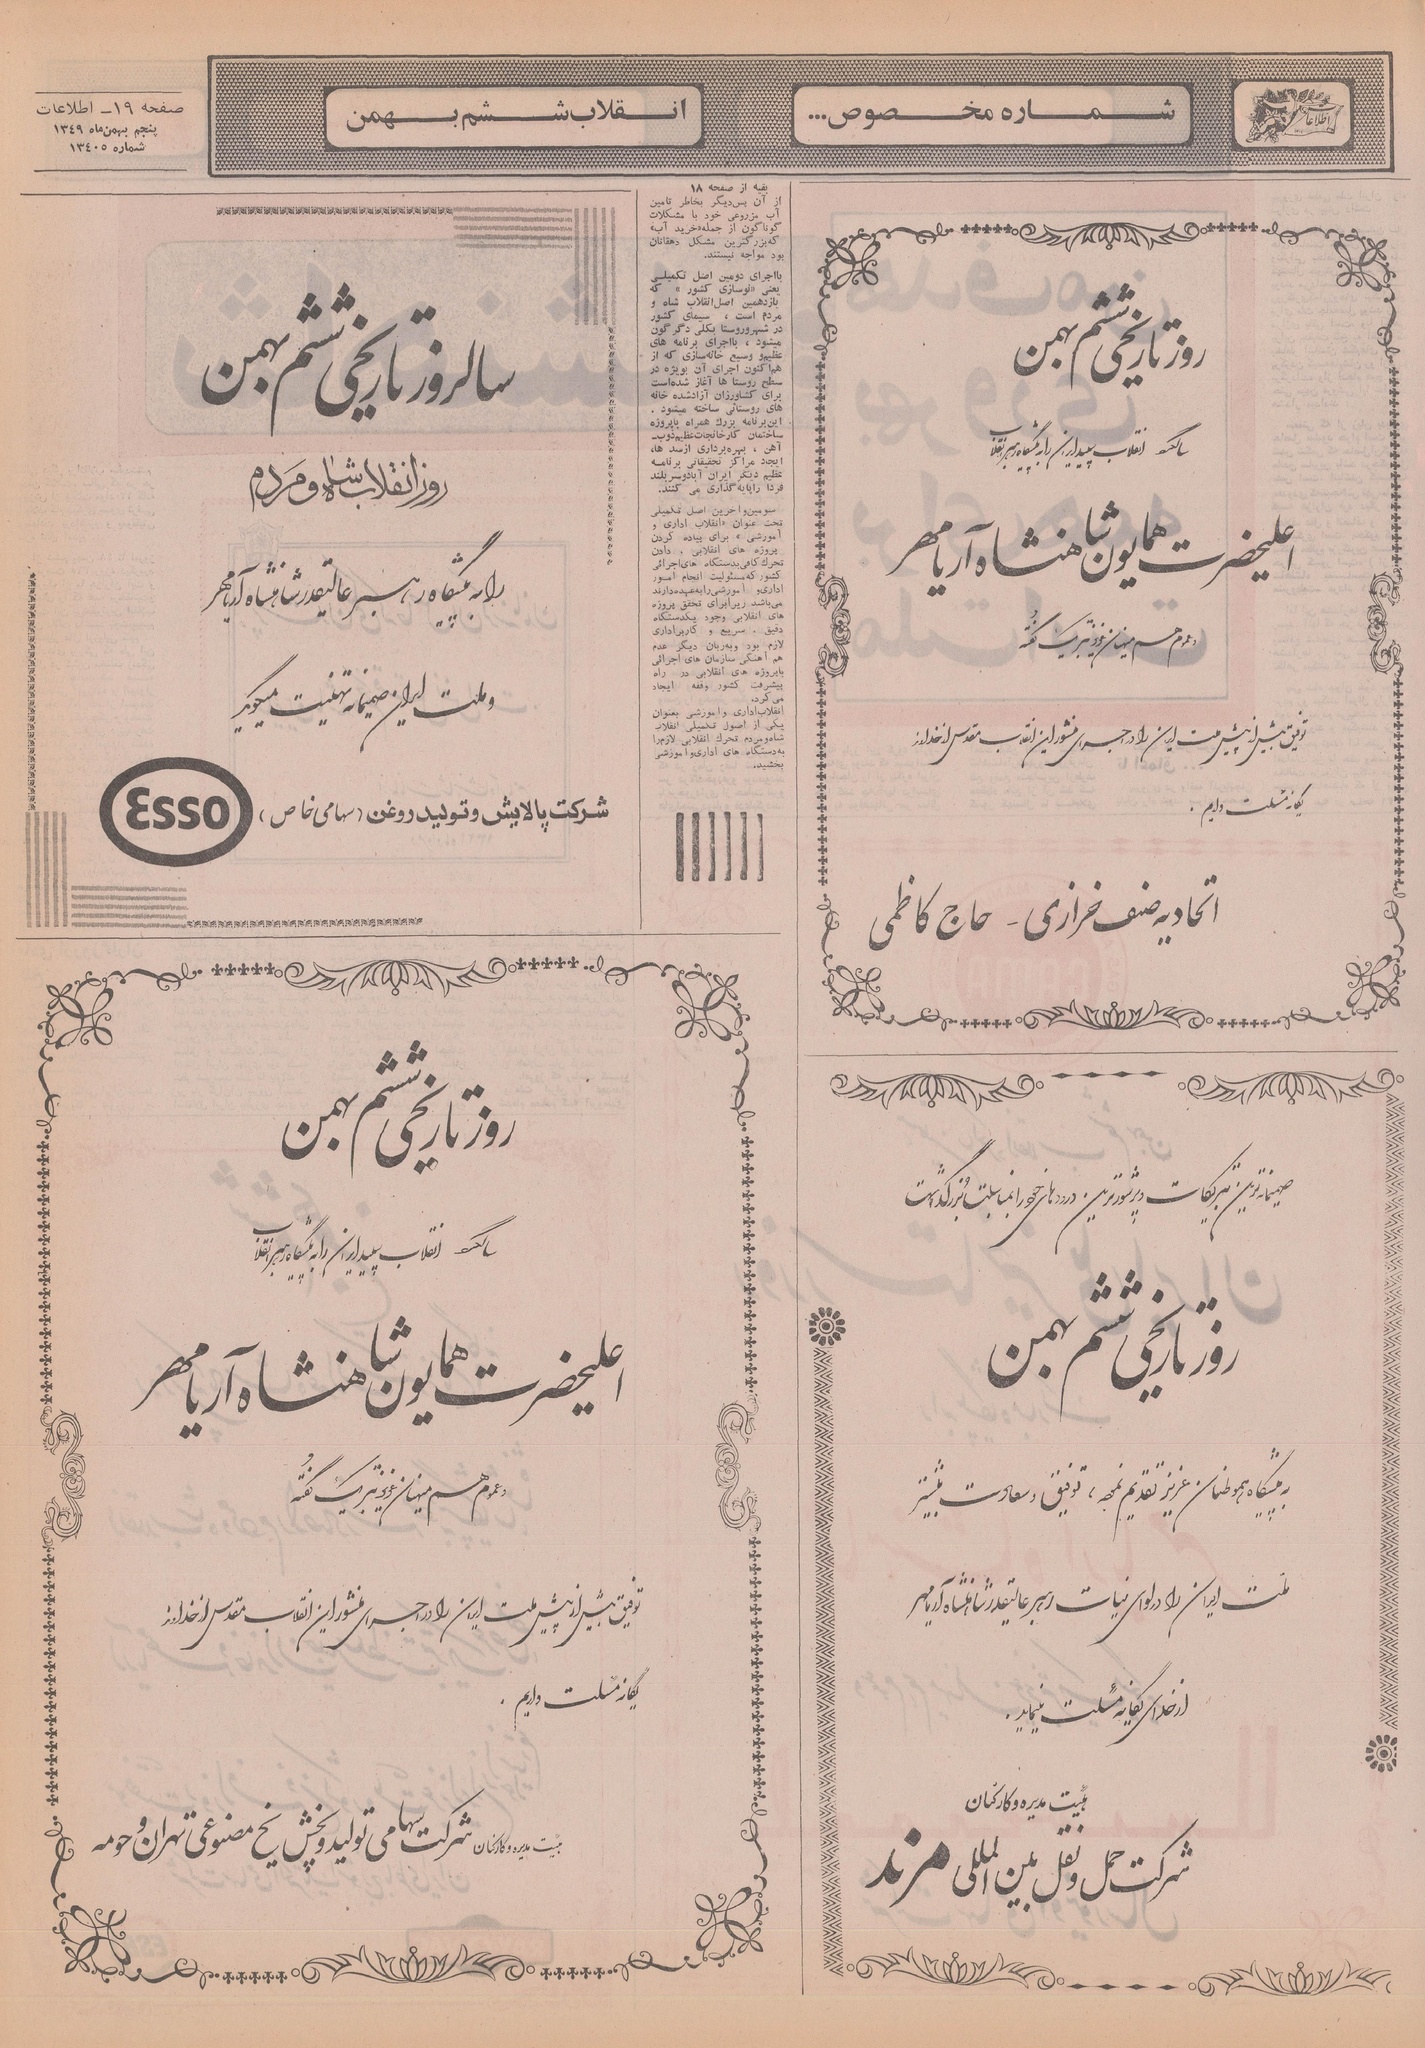 شماره مخصوص...
انقلاب ششم بهمن
صفحه ۱۹ـ اطلاعات
پنجم بهمن‌ماه ۱۳۴۹
شماره ۱۳۴۰۵
روز تاریخی ششم بهمن
سالگرد انقلاب سپید ایران را به پیشگاه رهبر انقلاب
اعلیحضرت همایون شاهنشاه آریامهر
و عموم هم میهنان عزیز تبریک گفته
توفیق بیش از پیش ملت ایران را در اجرای منشور این انقلاب مقدس از خداوند
یگانه مسئلت داریم .
اتحادیه صنف خرازی - حاج کاظمی
بقیه از صفحه ۱۸
از آن پس‌دیگر بخاطر تامین
آب مزروعی خود با مشکلات
گوناگون از جمله«خرید آب»
که‌بزرگترین مشکل دهقانان
بود مواجه نیستند.
بااجرای دومین اصل تکمیلی
یعنی «نوسازی کشور » که
یازدهمین اصل‌انقلاب شاه و
مردم است ، سیمای کشور
در شهروروستا بکلی دگرگون
میشود ، بااجرای برنامه های
عظیم‌و وسیع خانه‌سازی که از
هم‌اکنون اجرای آن بویژه در
سطح روستا ها آغاز شده‌است
برای کشاورزان آزادشده خانه
های روستائی ساخته میشود .
این‌برنامه بزرك همراه باپروژه
ساختمان کارخانجات‌عظیم‌ذوب‌ـ
آهن ، بهره‌برداری ازسد ها،
ایجاد مراکز تحقیقاتی برنامه
عظیم دیگر ایران آبادوسربلند
فردا راپایه‌گذاری می کنند.
سومین‌واخرین اصل تکمیلی
تحت عنوان «انقلاب اداری و
آموزشی » برای پیاده کردن
پروژه های انقلابی ، دادن
تحرك‌کافی‌بدستگاه های‌اجرائی
کشور که‌مسئولیت انجام امور
اداری‌و آموزشی‌را‌به‌عهده‌دارند
می‌باشد زیرابرای تحقق پروژه
های انقلابی وجود یكدستگاه
دقیق ، سریع و کاربراداری
لازم بود وبه‌زبان دیگر عدم
هم آهنگی سازمان های اجرائی
باپروژه های انقلابی در راه
پیشرفت کشور وقفه ایجاد
می‌کرد.
انقلاب‌اداری وآموزشی بعنوان
یکی از اصول تکمیلی انقلاب
شاه‌ومردم تحرك انقلابی لازم‌را
به‌دستگاه های اداری‌وآموزشی
بخشید.
سالروز تاریخی ششم بهمن
روز انقلاب شاه و مردم
را به پیشگاه رهبر عالیقدر شاهنشاه آریامهر
و ملت ایران صمیمانه تهنیت میگوید
شرکت پالایش و تولید روغن (سهامی خاص)
Esso
صمیمانه ترین تبریکات و پرشورترین درودهای خود را بمناسبت بزرگداشت
روز تاریخی ششم بهمن
به پیشگاه هموطنان عزیز تقدیم نموده ، توفیق و سعادت بیشتر
ملت ایران را در لوای نیات رهبر عالیقدر شاهنشاه آریامهر
از خدای یگانه مسئلت مینماید .
هیئت مدیره و کارکنان
شرکت حمل و نقل بین المللی مرند
روز تاریخی ششم بهمن
سالگرد انقلاب سپید ایران را به پیشگاه رهبر انقلاب
اعلیحضرت همایون شاهنشاه آریامهر
و عموم هم میهنان عزیز تبریک گفته
توفیق بیش از پیش ملت ایران را در اجرای منشور این انقلاب مقدس از خداوند
یگانه مسئلت داریم .
هیئت مدیره و کارکنان شرکت سهامی تولید و پخش یخ مصنوعی تهران و حومه